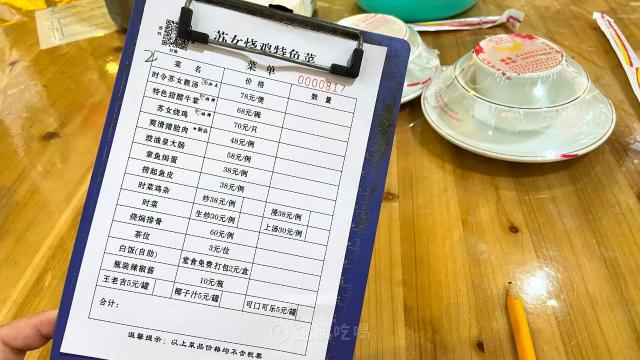 苏女烧鸡特色菜
菜单
0000817
菜名 价格 数量
时令苏女靓汤 78元/煲
特色甜醋牛掌 68元/碗
苏女烧鸡 70元/只
爽滑猪脸肉 48元/例
豉油皇大肠 58元/例
章鱼焗蛋 38元/例
捞起鱼皮 38元/例
时菜鸡杂 炒38元/例 浸38元/例
时菜 生炒30元/例 上汤30元/例
烧焗排骨 60元/例
茶位 3元/位
白饭(自助) 堂食免费,打包2元/盒
瓶装辣椒酱 10元/瓶
王老吉5元/罐 椰子汁5元/罐 可口可乐5元/罐
合计:
温馨提示:以上菜品价格均不含税票
企鹅吃喝